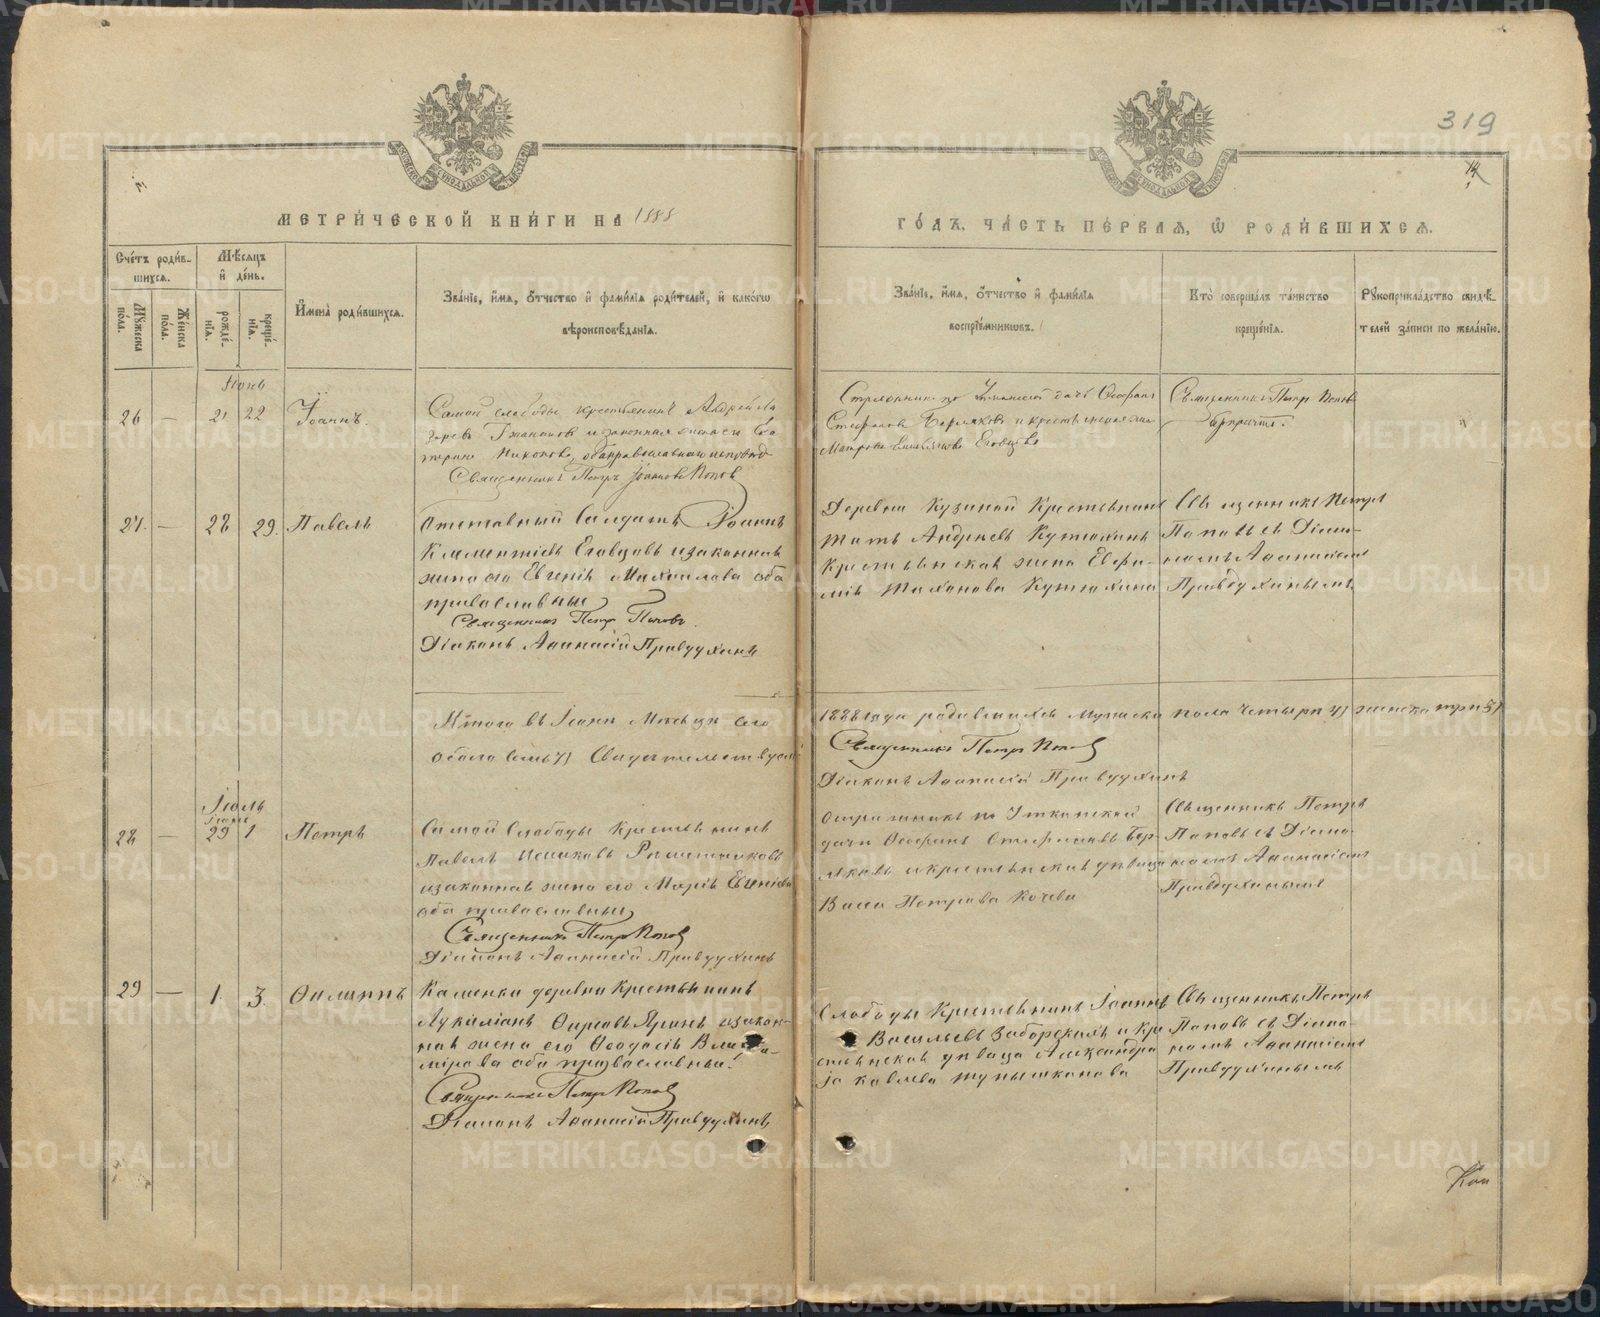 319
14
МЕТРИ́ЧЕСКОЙ КНИ́ГИ НА 1888
ГО́ДЪ, ЧА́СТЬ ПЕ́РВАЯ, Ѡ РОДИ́ВШИХСЯ.
Сче́тъ роди́в-
шихся.
Му́жеска по́ла.
Же́нска по́ла.
Мѣ́сяцъ
и де́нь.
рожде́-
нія.
креще́-
нія.
Имена̀ роди́вшихся.
Зва́нїе, и́мя, ѻ́тчество и фами́лїя роди́телей, и како́гѡ
вѣроисповѣ́данїя.
Зва́нїе, и́мя, ѻ́тчество и фами́лїя
воспрїе́мниковъ.
Кто̀ соверша́лъ та́инство
креще́нїя.
Рꙋкоприкла́дство свидѣ́-
телей за́писи по жела́нїю.
Іюнь
26 — 21 22 Іоаннъ.
Самой слободы крестьянинъ Андрей
и законная жена его
Никонова, оба православнаго
Священникъ Петръ Іоанновъ Поповъ
Ѳеофанъ
Стефановъ Берляковъ и крестьянская
Матрона Еговцева
Священникъ Петръ Поповъ
27. — 28 29. Павелъ
Отставный Солдатъ Іоаннъ
Климентіевъ Еговцовъ и законная
жена его Евгенія Михаилова оба
православныи
Священникъ Петръ Поповъ.
Діаконъ Аѳанасій Правдухинъ
Деревни Кузиной Крестьянинъ
Титъ Андреевъ Кутюхинъ
Крестьянская жена Евфи-
мія Тихонова Кутюхина
Священникъ Петръ
Поповъ съ Діако-
номъ Аѳанасіемъ
Правдухинымъ
Итого въ Іюнѣ Мѣсяцѣ сего
1888 года родившихся мужеска пола четыри 4) женска три 3)
обоего семь 7) Свидѣтельствуемъ
Священникъ Петръ Поповъ
Діаконъ Аѳанасій Правдухинъ
Іюль
Іюнь
28 — 29 1 Петръ
Самой Слободы Крестьянинъ
Павелъ Исааковъ Решетниковъ
и законная жена его Марія Евгеніева
оба православныи
Священникъ Петръ Поповъ
Діаконъ Аѳанасій Правдухинъ
по Уткинской
дачи Ѳеофанъ Стефановъ Бер-
ляковъ и крестьянская дѣвица
Васса Петрова Кочева
Священникъ Петръ
Поповъ съ Діако-
номъ Аѳанасіемъ
Правдухинымъ
29 — 1. 3. Филиппъ
Каменки деревни Крестьянинъ
Лукиліанъ Фирсовъ Яринъ и закон-
ная жена его Ѳеодосія Влади-
мірова оба православныи
Священникъ Петръ Поповъ
Діаконъ Аѳанасій Правдухинъ
Слободы Крестьянинъ Іоаннъ
Васильевъ Заборскихъ и кре
стьянская дѣвица Александра
Іаковлева Тупышканова
Священникъ Петръ
Поповъ съ Діако-
номъ Аѳанасіемъ
Правдухинымъ
METRIKI.GASO-URAL.RU